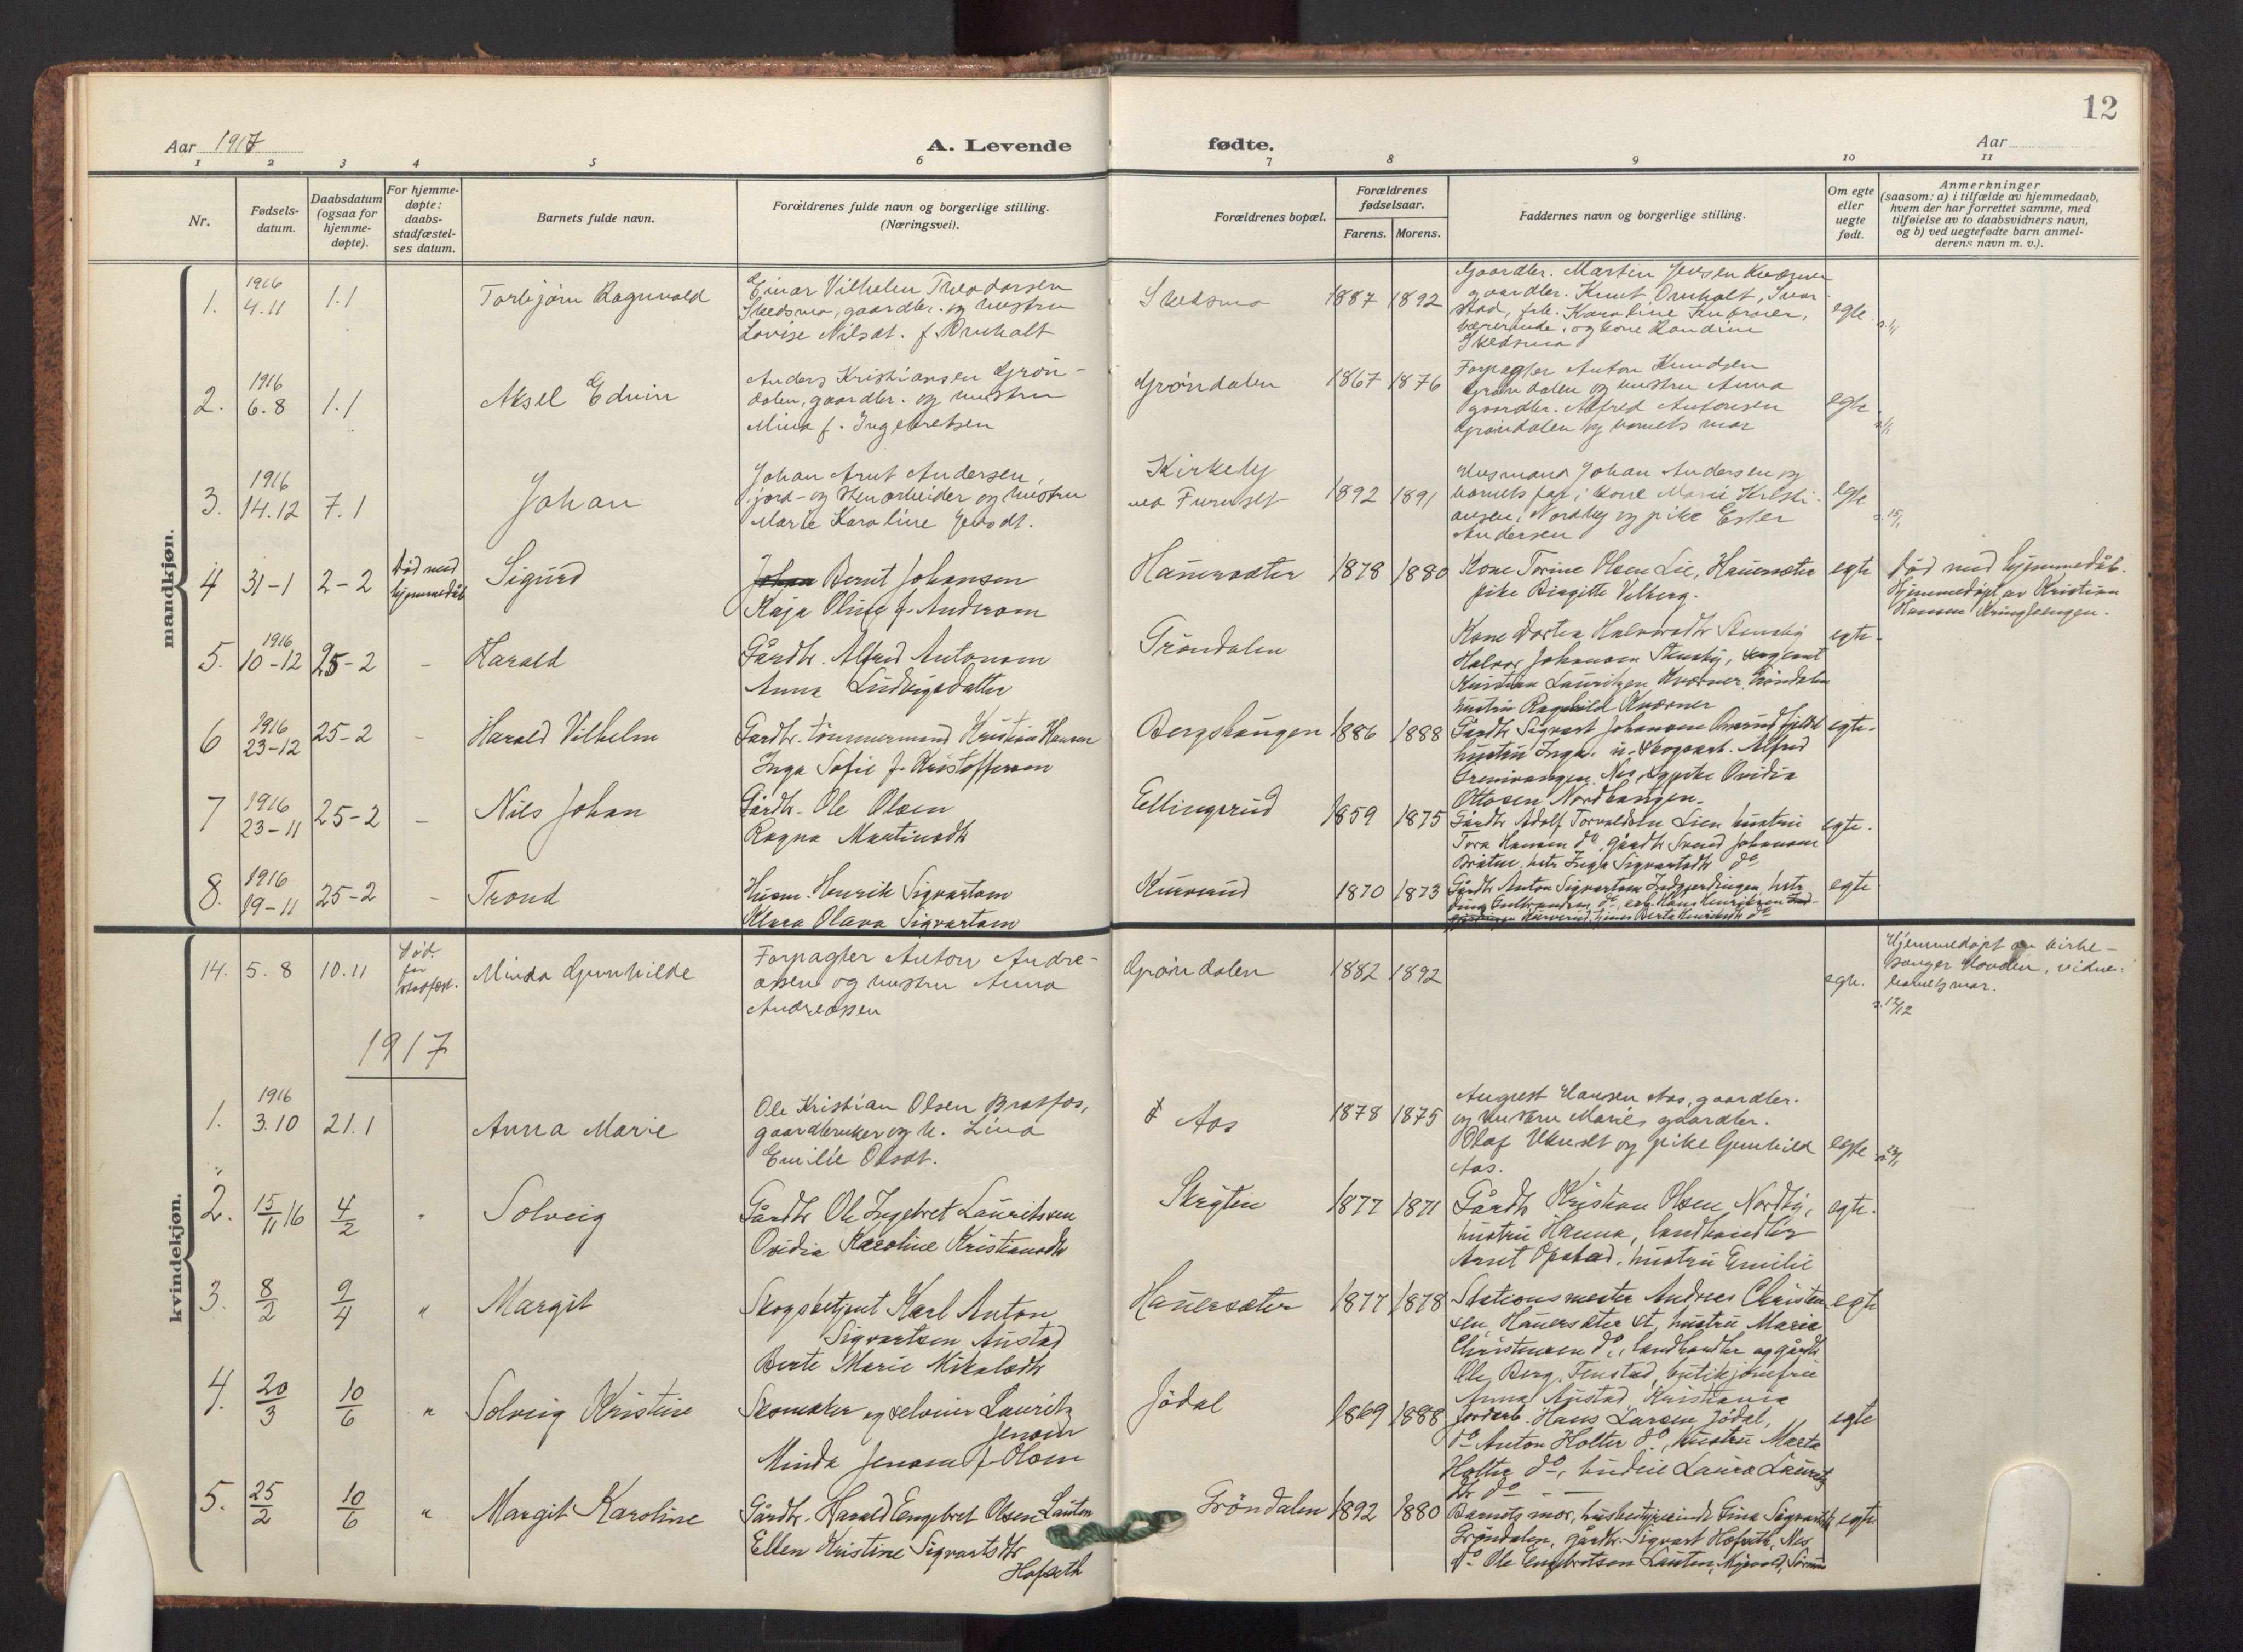 12
Aar 1917
A. Levende fødte.
Aar
1 2 3 4 5 6 7 8 9 10 11
Nr.
Fødsels-
datum.
Daabsdatum
(ogsaa for
hjemme-
døpte).
For hjemme-
døpte:
daabs-
stadfæstel-
ses datum.
Barnets fulde navn.
Forældrenes fulde navn og borgerlige stilling.
(Næringsvei).
Forældrenes bopæl.
Forældrenes
fødselsaar.
Farens. Morens.
Faddernes navn og borgerlige stilling.
Om egte
eller
uegte
født.
Anmerkninger
(saasom: a) i tilfælde av hjemmedaab,
hvem der har forrettet samme, med
tilføielse av to daabsvidners navn,
og b) ved uegtefødte barn anmel-
derens navn m. v.).
mandkjøn.
1. 1916
4.11 1.1 Torbjørn Ragnvald
Einar Vilhelm Theodorsen
Skedsmo, gaardbr. og hustru
Lovise Nilsdt. f. Omholt
Skedsmo 1887 1892
Gaardbr. Martin Jensen Kværner
gaardbr. Knut Omholt, Svar-
stad, frk. Karoline Kværner,
værerinde, og kone Randine
Skedsmo
egte
2. 1916
6.8 1.1 Aksel Edvin
Anders Kristiansen Grøn-
dalen, gaardbr. og hustru
Mina f. Ingebretsen
Grøndalen 1867 1876
Forpagter Anton Knudsen
Grøndalen og hustru Anna
gaardbr. Alfred Antonsen
Grøndalen og barnets mor
egte
3. 1916
14.12 7.1 Johan
Johan Arnt Andersen,
jord- og stenarbeider og hustru
Marie Karoline
Kirkeby
ved Furuset 1892 1891
Husmand Johan Andersen og
barnets far; kone Marie Kristi-
ansen, Nordby og pike Ester
Andersen
egte 15/1
4 31-1 2-2 Død med
hjemmedåb Sigurd
Johan Bernt Johansen
Kaja Oline f. Andersen
Hauersæter 1878 1880
Kone Torine Olsen Lie, Hauersæter
pike Birgitte Vilberg.
egte
Død med hjemmedåb.
Hjemmedøpt av Kristian
Hansen Kringlerengen.
5. 1916
10-12 25-2 - Harald
Gårdbr. Alfred Antonsen
Anna Ludvigsdatter
Grøndalen
Kone Dortea Halvorsdtr Stensby
Halvor Johansen Stensby, sergeant
Kristian Lauritzen Kværner, Grøndalen
hustru Ragnhild Kværner
egte.
6 1916
23-12 25-2 - Harald Vilhelm
Gardbr. tömmermand Kristian Hansen
Inga Sofie f. Kristoffersen
Bergshaugen 1886 1888
Gårdbr Sigvart Johansen
hustru Inga. u. skogsarb. Alfred
Nes, og pike Ovidia
Ottosen Nordhaugen.
egte.
7 1916
23-11 25-2 - Nils Johan
Gårdbr. Ole Olsen
Ragna Martinsdtr
Ellingsrud 1859 1875
Gårdbr Adolf Torvaldsen Lien hustru
Tora Hansen do, gårdbr Svend Johansen
Bråten, hstr Inga Sigvartsdtr do
egte.
8. 1916
19-11 25-2 - Trond
Husm. Henrik Sigvartsen
Klara Olava Sigvartsen
Kurerud 1870 1873
Gårdbr Anton Sigvartsen hstr
do, Hans Henriksen
Kurverud, Berta Henriksdtr do
egte
kvindekjøn.
14. 5.8 10.11 Død
før
stadfæst. Minda Gunhilde
Forpagter Anton Andre-
assen og hustru Anna
Andreassen
Grøndalen 1882 1892
egte.
Hjemmedøpt av kirke-
sanger vidne:
barnets mor.
12/12
1917
1. 1916
3.10 21.1 Anna Marie
Ole Kristian Olsen Bratfos,
gaardbruker og h. Lina
Emilie Olsdt.
Aas 1878 1875
August Hansen Aas, gaardbr.
og hustru Marie, gaardbr.
Olaf og pike Gunhild
Aas.
egte
2. 15/11 16 4/2 " Solveig
Gårdbr Ole Ingebret Lauritssen
Ovidia Karoline Kristiansdtr
Skrytin 1877 1871
Gårdbr Kristian Olsen Nordby,
hustru Hanna, landhandler
Arnt Opstad, hustru Emilie
egte.
3. 8/2 9/4 " Margit
Skogsbetjent Karl Anton
Sigvartsen Austad
Berte Marie Mikalsdtr
Hauersæter 1877 1878
Stationsmester Andreas Christen-
sen, Hauersæter st, hustru Maria
Christensen do, landhandler og gårdbr
Ole Berg, Finstad, butikjomfru
Anna Austad, Kristiania
egte
4. 20/3 10/6 " Solveig Kristine
Skomaker og selveier Lauritz
Jensen
Minda Jensen f. Olsen
Jödal 1869 1888
Jordarb. Hans Larsen Jödal,
do Anton Holter do, hustru Marte
Holter do, budeie Laura Lauritz
dtr do
egte
5. 25/2 10/6 " Margit Karoline
Gårdbr. Harald Engebret Olsen Lauten
Ellen Kristine Sigvartsdtr
Hofseth
Gröndalen 1892 1880
Barnets mor, husbestyrerinde Gina Sigvartsdtr
Gröndalen, gårdbr. Sigvart Hofseth, Nes
do Ole Engebretsen Lauten, Sörum
egte